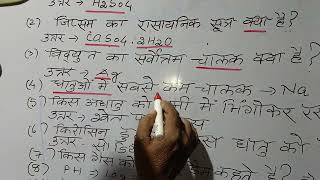 उत्तर → H2SO4
(2) जिप्सम का रासायनिक सूत्र क्या है?
उत्तर → CaSO4.2H2O
(3) विद्युत का सर्वोत्तम चालक क्या है?
उत्तर → Ag
(4) धातुओं में सबसे कम चालक → Na
(5) किस अधातु को पानी में भिंगोकर
उत्तर → श्वेत
(6) किरोसिन धातु को
उत्तर → सोडि
(7) किस गैस को कहते हैं?
(8) PH → Log